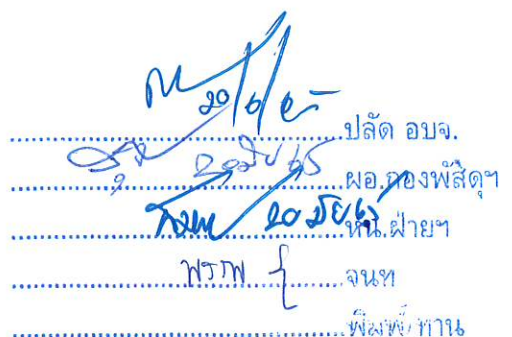 ๒๐/๖/๖๕
ปลัด อบจ.
๒๐ มิย ๖๕
ผอ.กองพัสดุฯ
๒๐ มิย ๖๕
หน.ฝ่ายฯ
จนท
พิมพ์/ทาน